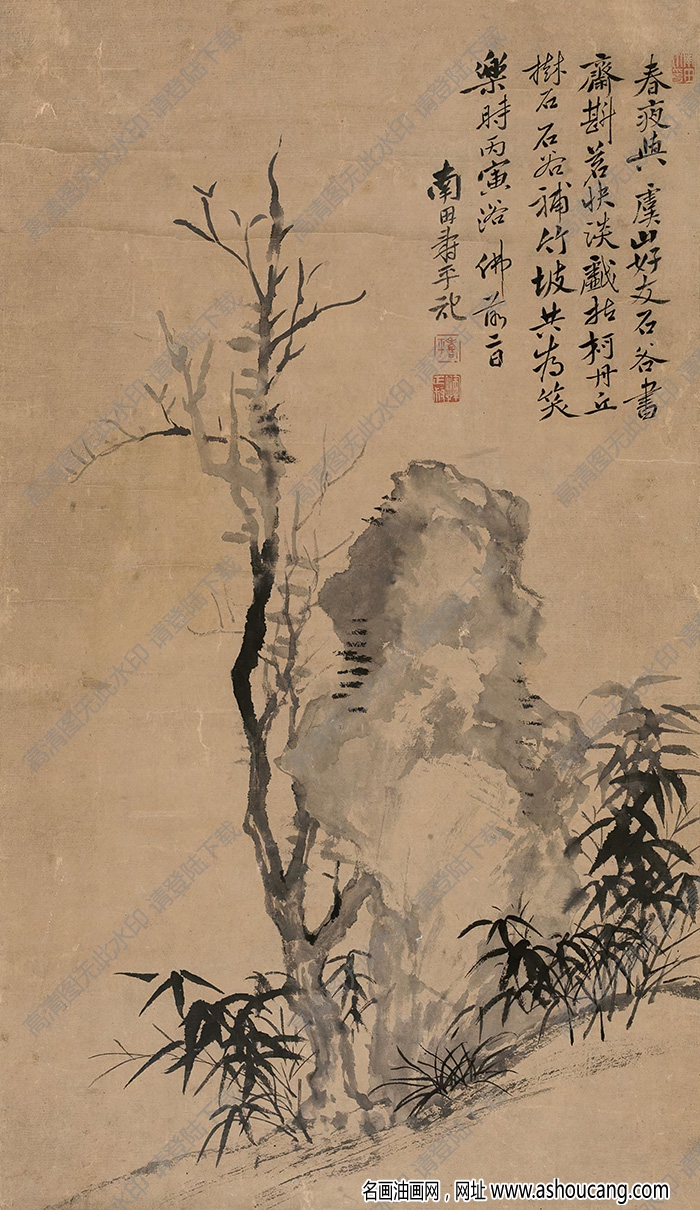 春夜與虞山好友石谷書
齋斟茗快談戲拈柯丹丘
樹石石谷補竹坡共為笑
樂時丙寅浴佛前二日
南田壽平記
高清图无此水印 请登陆下载
名画油画网，网址 www.ashoucang.com